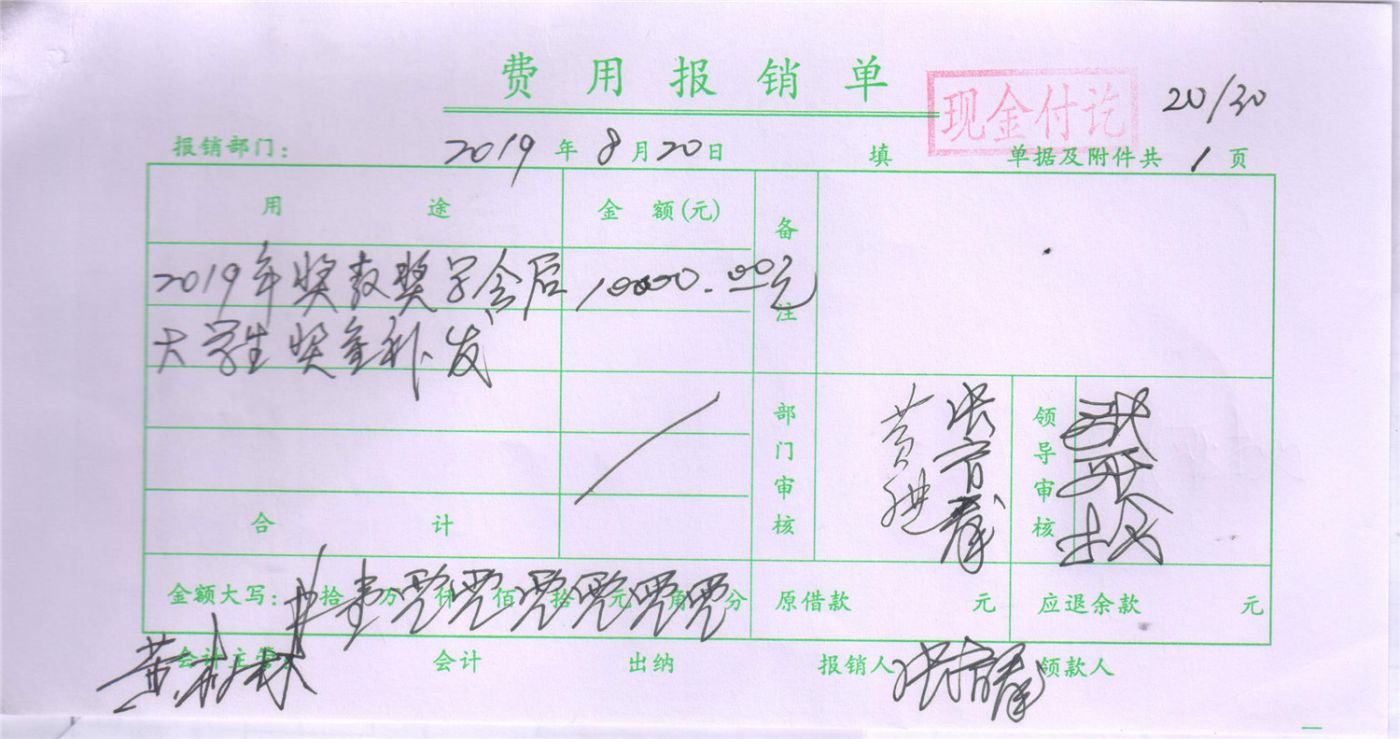 费用报销单
现金付讫
20/30
报销部门： 2019年8月20日 填 单据及附件共 1 页
用途 金额(元) 备注
2019年奖教奖学金后 10000.00元
大学生奖金补发
部门审核 黄 领导审核
合计
金额大写： 拾 壹万 零仟 零佰 零拾 零元 零角 零分 原借款 元 应退余款 元
会计主管 会计 出纳 报销人 领款人